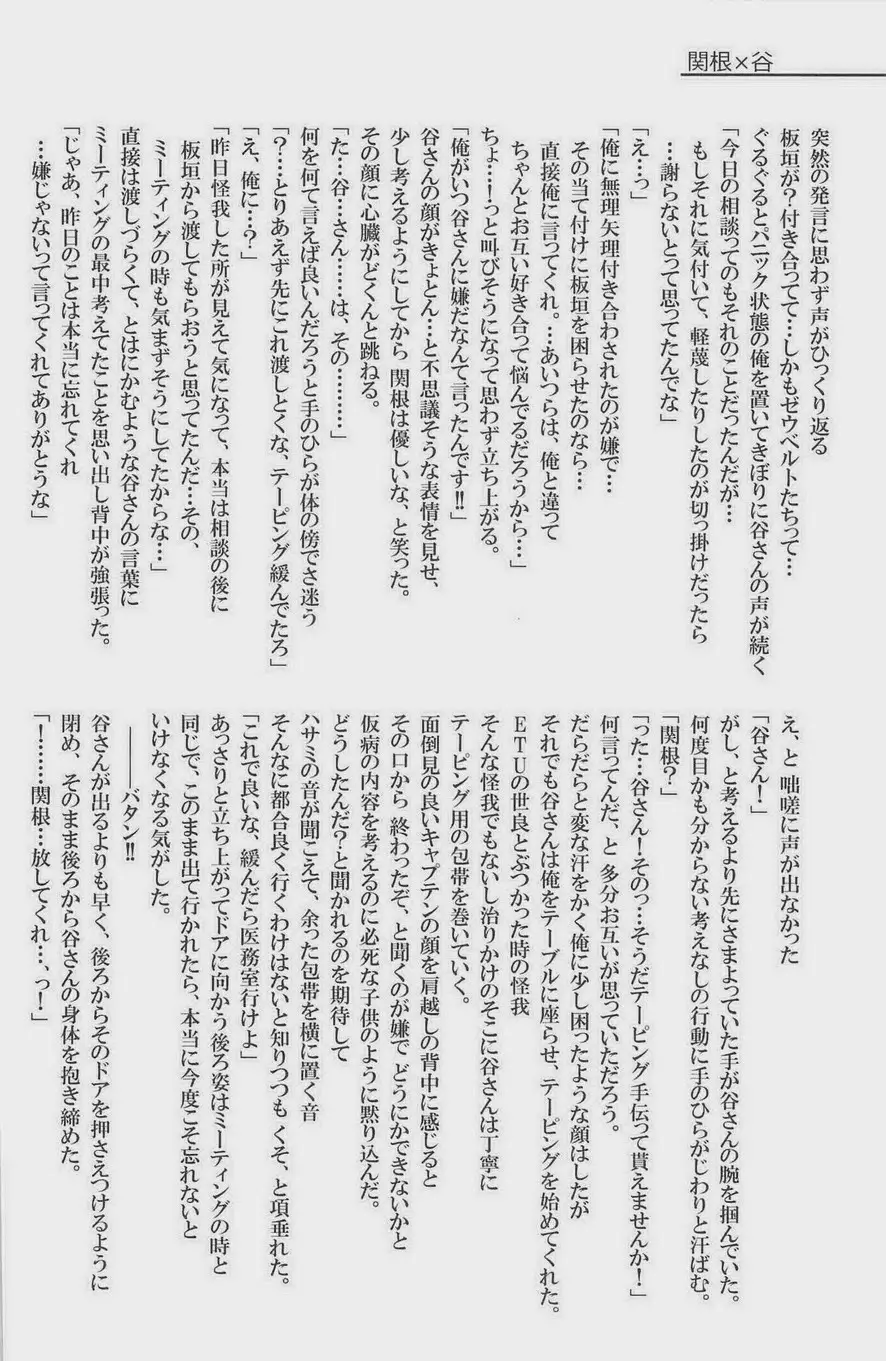 関根×谷
突然の発言に思わず声がひっくり返る
板垣が？付き合ってて…しかもゼウベルトたちって…
ぐるぐるとパニック状態の俺を置いてきぼりに谷さんの声が続く
「今日の相談ってのもそれのことだったんだが…
もしそれに気付いて、軽蔑したりしたのが切っ掛けだったら
…謝らないとって思ってたんでな」
「え…っ」
「俺に無理矢理付き合わされたのが嫌で…
その当て付けに板垣を困らせたのなら…
直接俺に言ってくれ。…あいつらは、俺と違って
ちゃんとお互い好き合って悩んでるだろうから…」
ちょ…！っと叫びそうになって思わず立ち上がる。
「俺がいつ谷さんに嫌だなんて言ったんです‼」
谷さんの顔がきょとん…と不思議そうな表情を見せ、
少し考えるようにしてから 関根は優しいな、と笑った。
その顔に心臓がどくんと跳ねる。
「た…谷…さん……は、その………」
何を何て言えば良いんだろうと手のひらが体の傍でさ迷う
「？……とりあえず先にこれ渡しとくな、テーピング緩んでたろ」
「え、俺に…？」
「昨日怪我した所が見えて気になって、本当は相談の後に
板垣から渡してもらおうと思ってたんだ…その、
ミーティングの時も気まずそうにしてたからな…」
直接は渡しづらくて、とはにかむような谷さんの言葉に
ミーティングの最中考えてたことを思い出し背中が強張った。
「じゃあ、昨日のことは本当に忘れてくれ
…嫌じゃないって言ってくれてありがとうな」
え、と 咄嗟に声が出なかった
「谷さん！」
がし、と考えるより先にさまよっていた手が谷さんの腕を掴んでいた。
何度目かも分からない考えなしの行動に手のひらがじわりと汗ばむ。
「関根？」
「った…谷さん！そのっ…そうだテーピング手伝って貰えませんか！」
何言ってんだ、と 多分お互いが思っていただろう。
だらだらと変な汗をかく俺に少し困ったような顔はしたが
それでも谷さんは俺をテーブルに座らせ、テーピングを始めてくれた。
ETUの世良とぶつかった時の怪我
そんな怪我でもないし治りかけのそこに谷さんは丁寧に
テーピング用の包帯を巻いていく。
面倒見の良いキャプテンの顔を肩越しの背中に感じると
その口から 終わったぞ、と聞くのが嫌で どうにかできないかと
仮病の内容を考えるのに必死な子供のように黙り込んだ。
どうしたんだ？と聞かれるのを期待して
ハサミの音が聞こえて、余った包帯を横に置く音
そんなに都合良く行くわけはないと知りつつも くそ、と項垂れた。
「これで良いな、緩んだら医務室行けよ」
あっさりと立ち上がってドアに向かう後ろ姿はミーティングの時と
同じで、このまま出て行かれたら、本当に今度こそ忘れないと
いけなくなる気がした。
――バタン‼
谷さんが出るよりも早く、後ろからそのドアを押さえつけるように
閉め、そのまま後ろから谷さんの身体を抱き締めた。
「！……関根…放してくれ…、っ！」